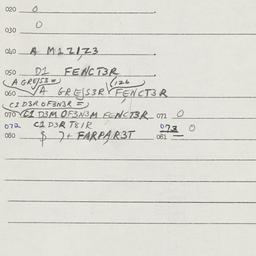 020 0
030 0
040 A M12123
050 D1 FENCT3R
A GRE/S3=) (126
060 /A GRE/S3R/FENCT3R
C1 D3R OF3N3R=)
070 /C1 D3M OF3N3M FENCT3R 071 0
072 C1 D3R T81R 073 0
080 $ 7+ FARPAR3T 081